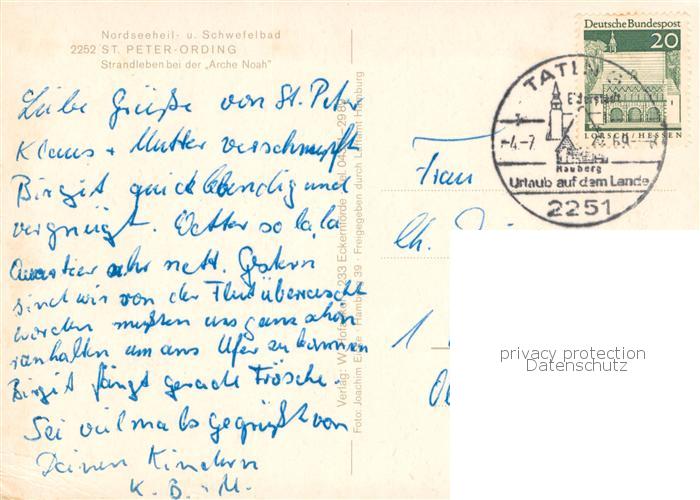 Nordseeheil- u. Schwefelbad
2252 ST. PETER-ORDING
Strandleben bei der „Arche Noah"
Liebe Grüße von St. Peter
Klaus + Mutter verschnupft
Birgit quicklebendig und
vergnügt. Wetter so la, la
Quartier sehr nett. Gestern
sind wir von der Flut überrascht
worden mußten uns ganz schön
ranhalten um ans Ufer zu kommen
Birgit fängt gerade Frösche.
Sei vielmals gegrüßt von
Deinen Kindern
K. B. + M.
Foto: Joachim Hamburg 39 · Freigegeben durch Hamburg
Deutsche Bundespost
20
LORSCH/HESSEN
TATING
Eiderstedt
-4.-7. 69
Hauberg
Urlaub auf dem Lande
2251
Frau
Ch.
1
privacy protection
Datenschutz